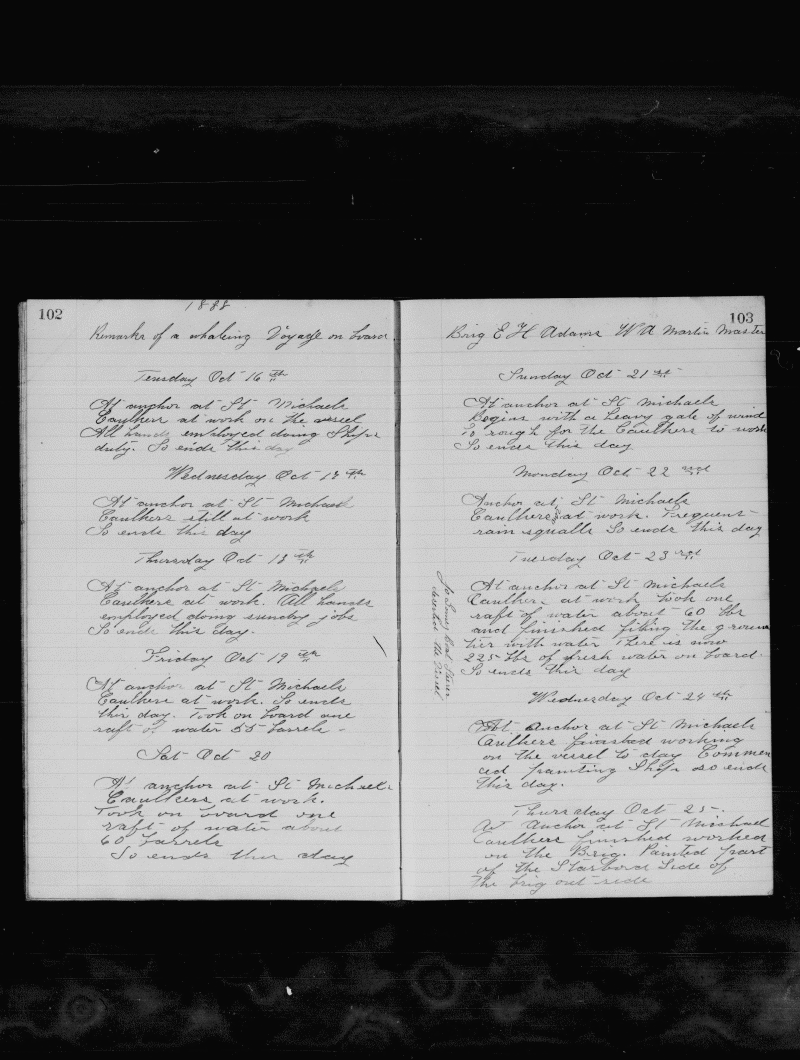 102
1888
Remarks of a whaleing Voyage on board
Tuesday Oct 16 th
At anchor at St Michaels
Caulkers at work on the vessel
All hands employed doing Ships
duty. So ends this day
Wednesday Oct 17 th
At anchor at St Michael
Caulkers still at work
So ends this day
Thursday Oct 18 th
At anchor at St Michaels
Caulkers at work. All hands
employed doing sundry jobs
So ends this day.
Friday Oct 19 th
At anchor at St Michaels
Caulkers at work. So ends
this day. Took on board one
raft of water 55 barrels
Sat Oct 20
At anchor at St Michaels
Caulkers at work.
Took on board one
raft of water about
60 barrels
So ends this day
103
Brig E H Adams W A Martin Master
Sunday Oct 21 st
At anchor at St Michaels
Begins with a heavy gale of wind
To rough for the Caulkers to work
So ends this day
Monday Oct 22 nd
Anchor at St Michaels
Caulkers at work. Frequent
rain squalls So ends this day
Tuesday Oct 23 rd
At anchor at St Michaels
Caulkers at work took one
raft of water about 60 bbs
and finished filling the ground
tier with water There is now
225 bbs of fresh water on board
So ends this day
Boat
the Vessel
Wednesday Oct 24 th
At Anchor at St Michaels
Caulkers finished working
on the vessel to day Commen
ced painting Ship so ends
this day.
Thursday Oct 25
At Anchor at St Michael
Caulkers finished worked
on the Brig. Painted part
of the Starbord Side of
the brig out side